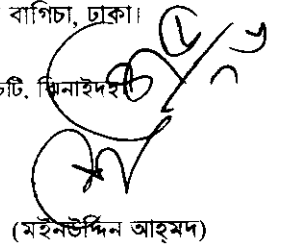 বাগিচা, ঢাকা।
চটি, ঝিনাইদহ
(মইনউদ্দিন আহমদ)